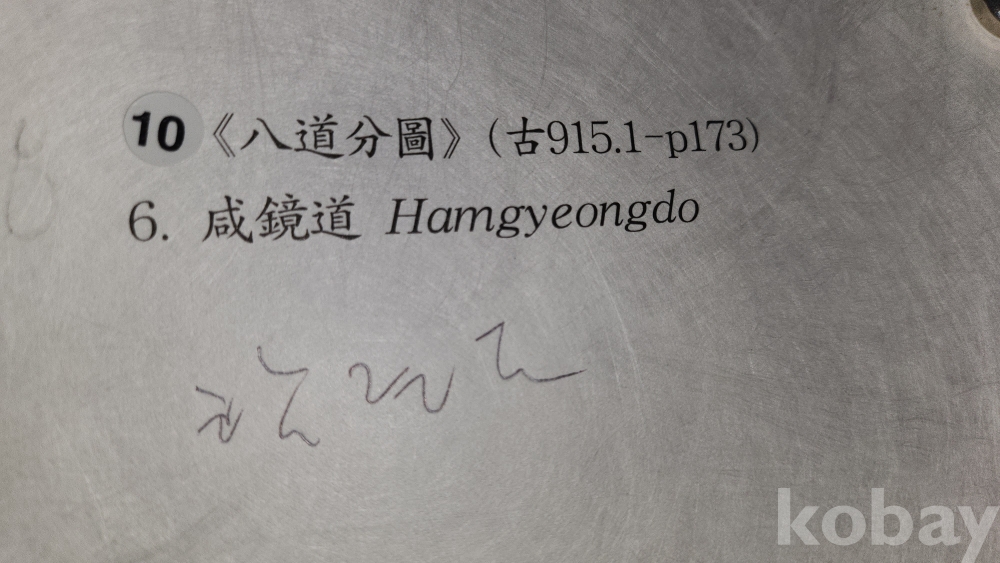 10 《八道分圖》 (古915.1-p173)
6. 咸鏡道 Hamgyeongdo
kobay